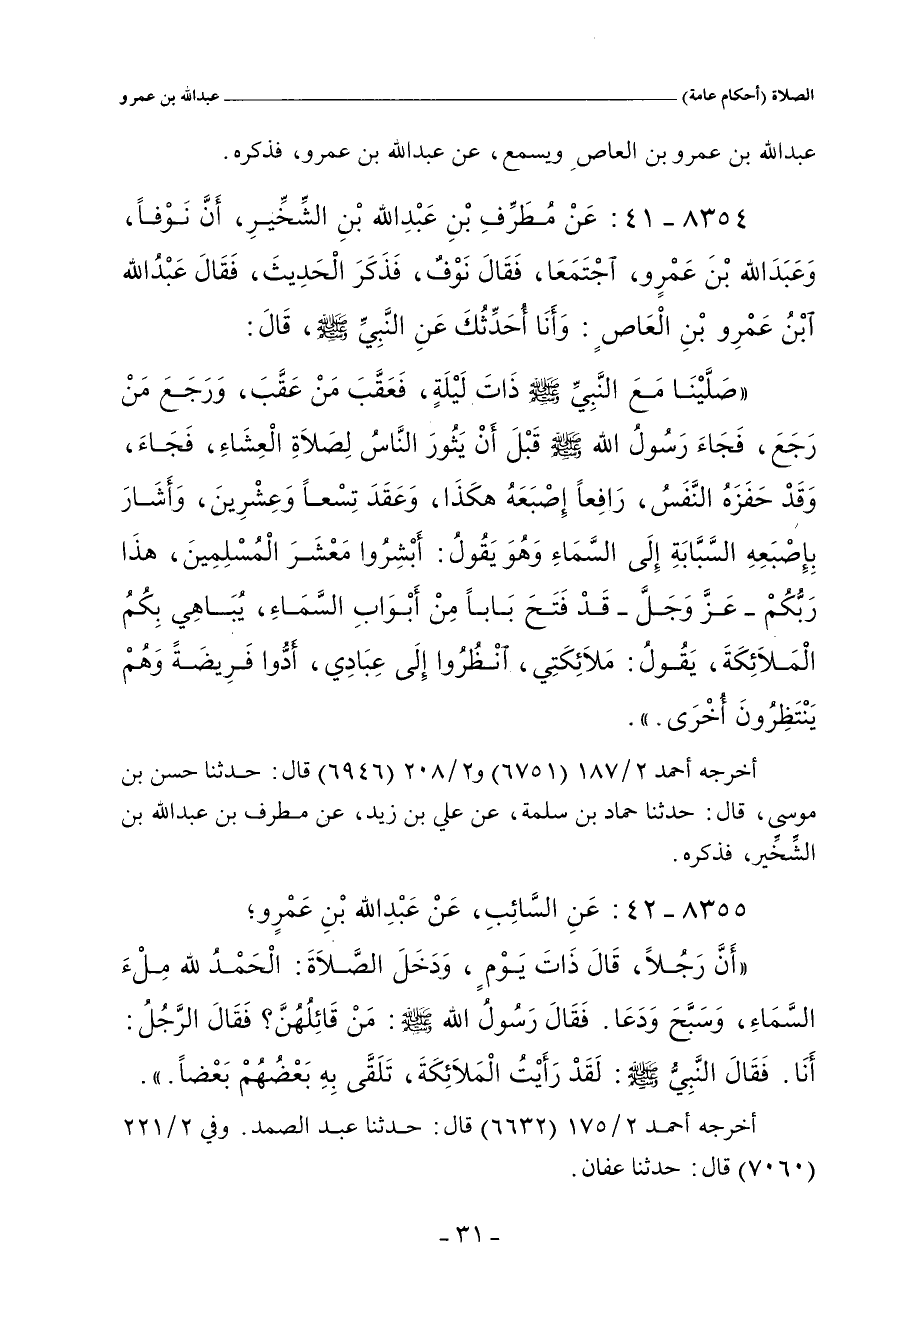 الصلاة (أحكام عامة) ـــــــــــــــــــــــــــــــــــــــــ عبدالله بن عمرو
عبدالله بن عمرو بن العاص ويسمع، عن عبدالله بن عمرو، فذكره.
٨٣٥٤ - ٤١ : عَنْ مُطَرِّفِ بْنِ عَبْدِالله بْنِ الشِّخِّيرِ، أَنَّ نَوْفاً،
وَعَبَدَالله بْنَ عَمْرٍو، آجْتَمَعَا، فَقَالَ نَوْفٌ، فَذَكَرَ الْحَدِيثَ، فَقَالَ عَبْدُالله
آبْنُ عَمْرِو بْنِ الْعَاصِ : وَأَنَا أُحَدِّثُكَ عَنِ النَّبِيِّ ﷺ، قَالَ:
«صَلَّيْنَا مَعَ النَّبِيِّ ﷺ ذَاتَ لَيْلَةٍ، فَعَقَّبَ مَنْ عَقَّبَ، وَرَجَعَ مَنْ
رَجَعَ، فَجَاءَ رَسُولُ الله ﷺ قَبْلَ أَنْ يَثُورَ النَّاسُ لِصَلاَةِ الْعِشَاءِ، فَجَاءَ،
وَقَدْ حَفَزَهُ النَّفَسُ، رَافِعاً إِصْبَعَهُ هكَذَا، وَعَقَدَ تِسْعاً وَعِشْرِينَ، وَأَشَارَ
بِإِصْبَعِهِ السَّبَّابَةِ إِلَى السَّمَاءِ وَهُوَ يَقُولُ: أَبْشِرُوا مَعْشَرَ الْمُسْلِمِينَ، هذَا
رَبُّكُمْ - عَزَّ وَجَلَّ - قَدْ فَتَحَ بَاباً مِنْ أَبْوَابِ السَّمَاءِ، يُبَاهِي بِكُمُ
الْمَلاَئِكَةَ، يَقُولُ: مَلاَئِكَتِي، آنْظُرُوا إِلَى عِبَادِي، أَدُّوا فَرِيضَةً وَهُمْ
يَنْتَظِرُونَ أُخْرَى.».
أخرجه أحمد ٢/ ١٨٧ (٦٧٥١) و٢/ ٢٠٨ (٦٩٤٦) قال: حدثنا حسن بن
موسى، قال: حدثنا حماد بن سلمة، عن علي بن زيد، عن مطرف بن عبدالله بن
الشِّخِّير، فذكره.
٨٣٥٥ - ٤٢ : عَنِ السَّائِبِ، عَنْ عَبْدِالله بْنِ عَمْرٍو؛
«أَنَّ رَجُلاً، قَالَ ذَاتَ يَوْمٍ، وَدَخَلَ الصَّلاَةَ: الْحَمْدُ لله مِلْءَ
السَّمَاءِ، وَسَبَّحَ وَدَعَا. فَقَالَ رَسُولُ الله ﷺ: مَنْ قَائِلُهُنَّ؟ فَقَالَ الرَّجُلُ:
أَنَا. فَقَالَ النَّبِيُّ ﷺ: لَقَدْ رَأَيْتُ الْمَلاَئِكَةَ، تَلَقَّى بِهِ بَعْضُهُمْ بَعْضاً.».
أخرجه أحمد ٢/ ١٧٥ (٦٦٣٢) قال: حدثنا عبد الصمد. وفي ٢/ ٢٢١
(٧٠٦٠) قال: حدثنا عفان.
- ٣١ -